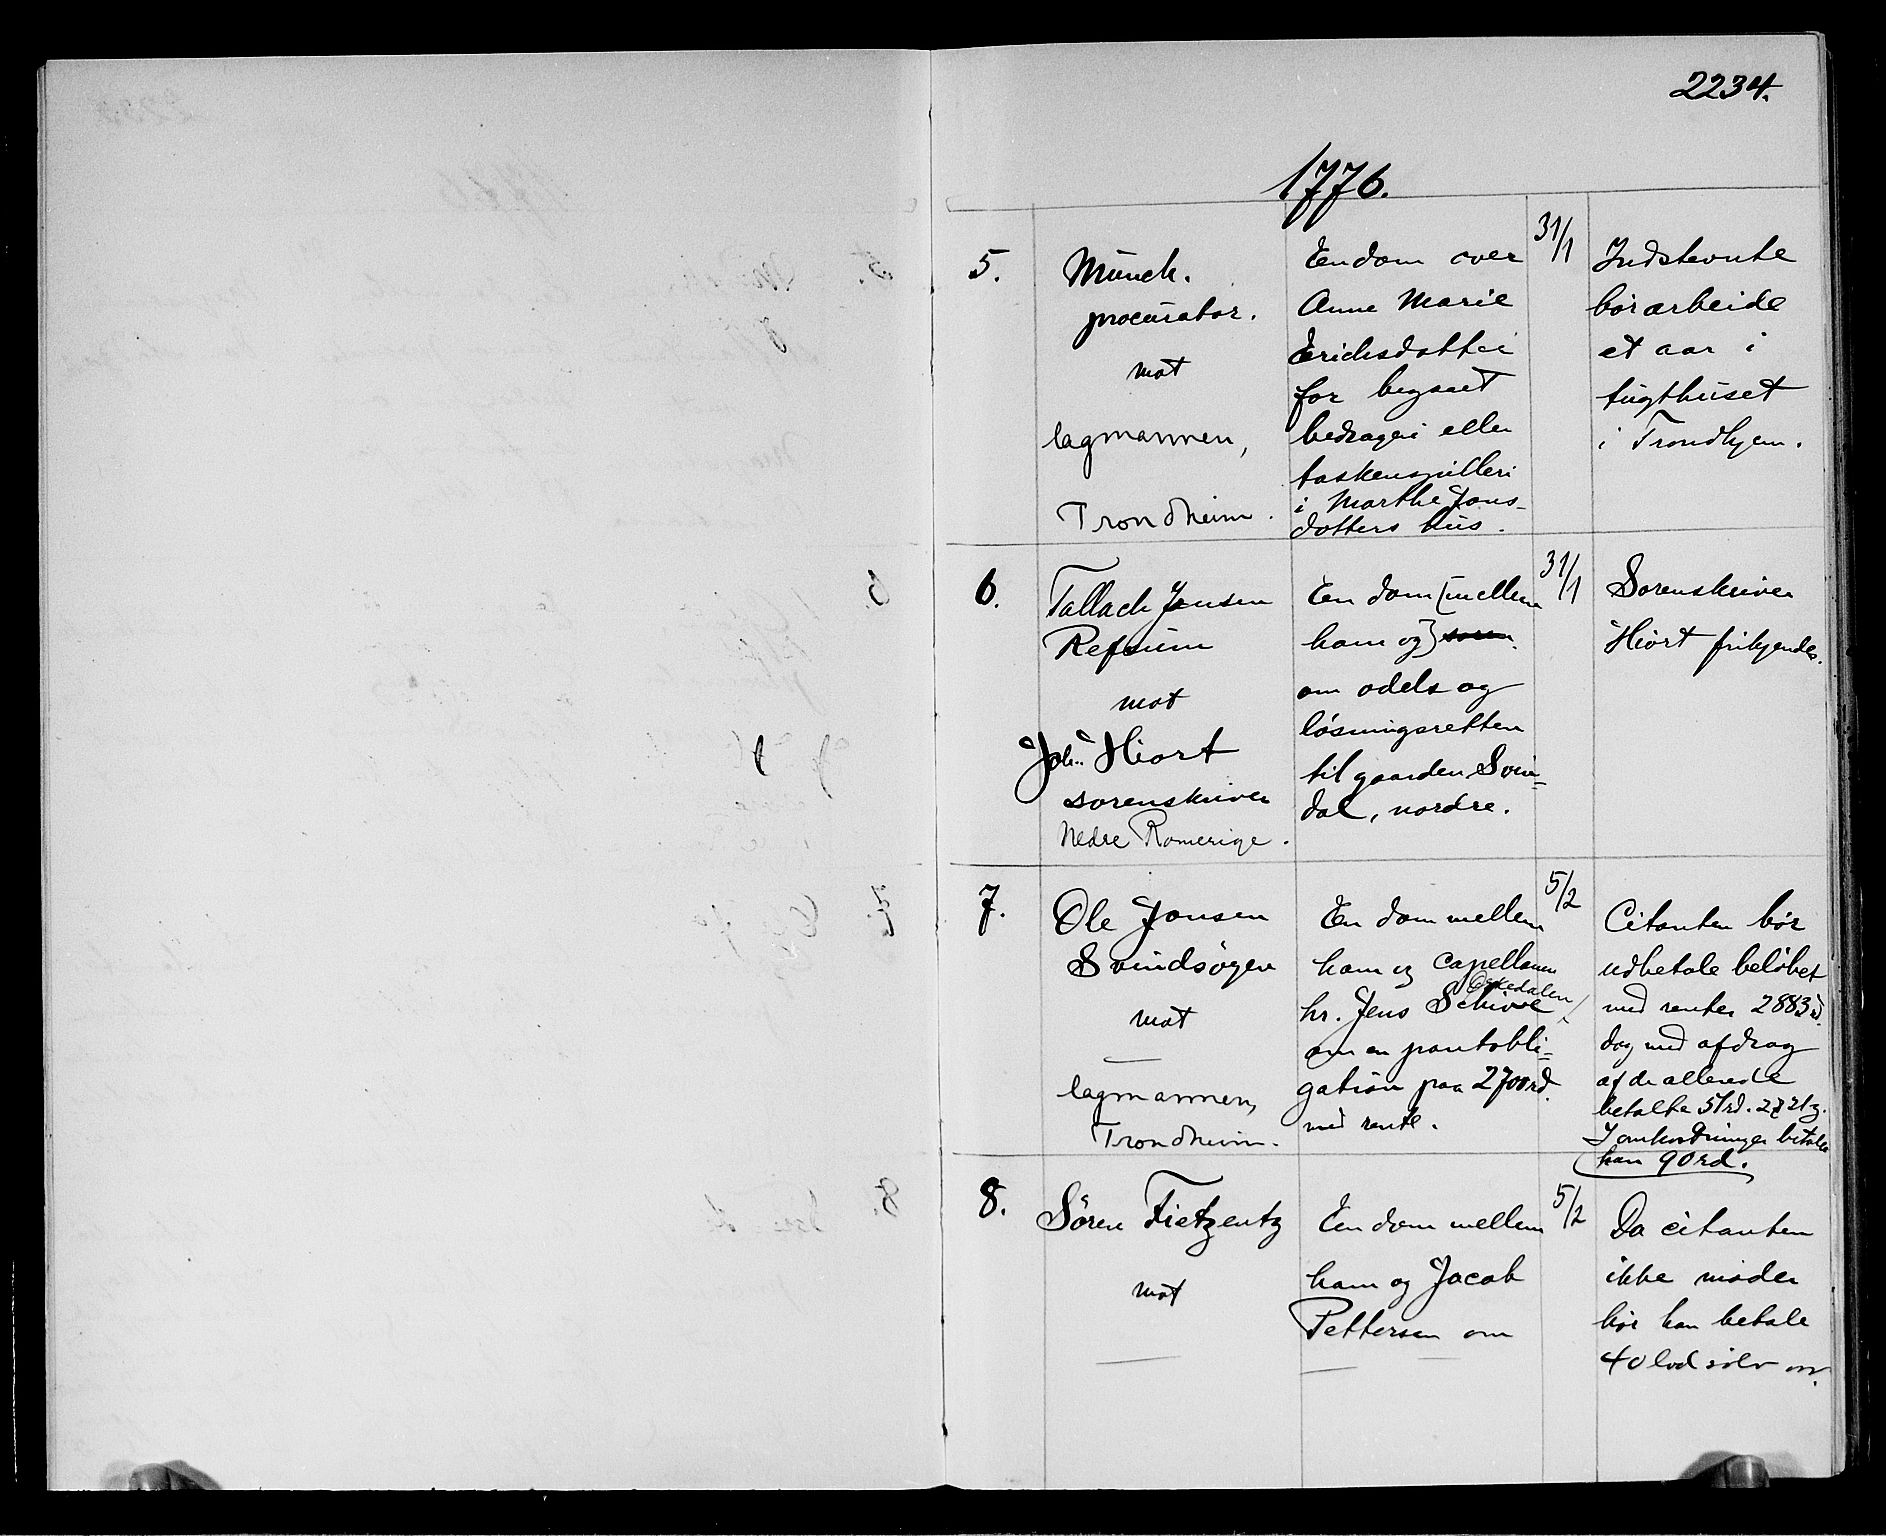 2234.
1776.
5.
Münch.
procurator.
mot
lagmannen,
Trondheim.
En dom over
Anne Marie
Erichsdotter
for begaaet
bedrageri eller
taskenspilleri
i Marthe Jons-
dotters hus.
31/1
Indstevnte
bør arbeide
et aar i
tugthuset
i Trondhjem.
6.
Tallach Jensen
Refsum
mot
Joh. Hiort
sorenskriver
Nedre Romerige.
En dom [mellem
ham og] soren
om odels og
løsningsretten
til gaarden Svin-
dal, nordre.
31/1
Sorenskriver
Hiort frikjendes.
7.
Ole Jonsen
Svindsøgen
mot
lagmannen,
Trondheim.
En dom mellem
ham og Capellanen
Ørkedalen
hr. Jens Schive
om en pantobli-
gation paa 2700 rd.
med rente.
5/2
Citanten bør
udbetale beløbet
med renter 2883 rd.
dog med afdrag
af de allerede
betalte 51 rd.
I omkostninger betaler
han 90 rd.
8.
Søren Fietzentz
mot
En dom mellem
ham og Jacob
Pettersen om
5/2
Da citanten
ikke møder
bør han betale
40 lod sølv